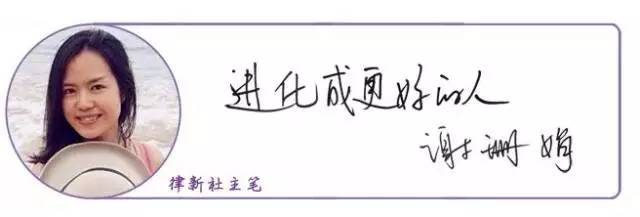 进化成更好的人
谢珊娟
律新社主笔